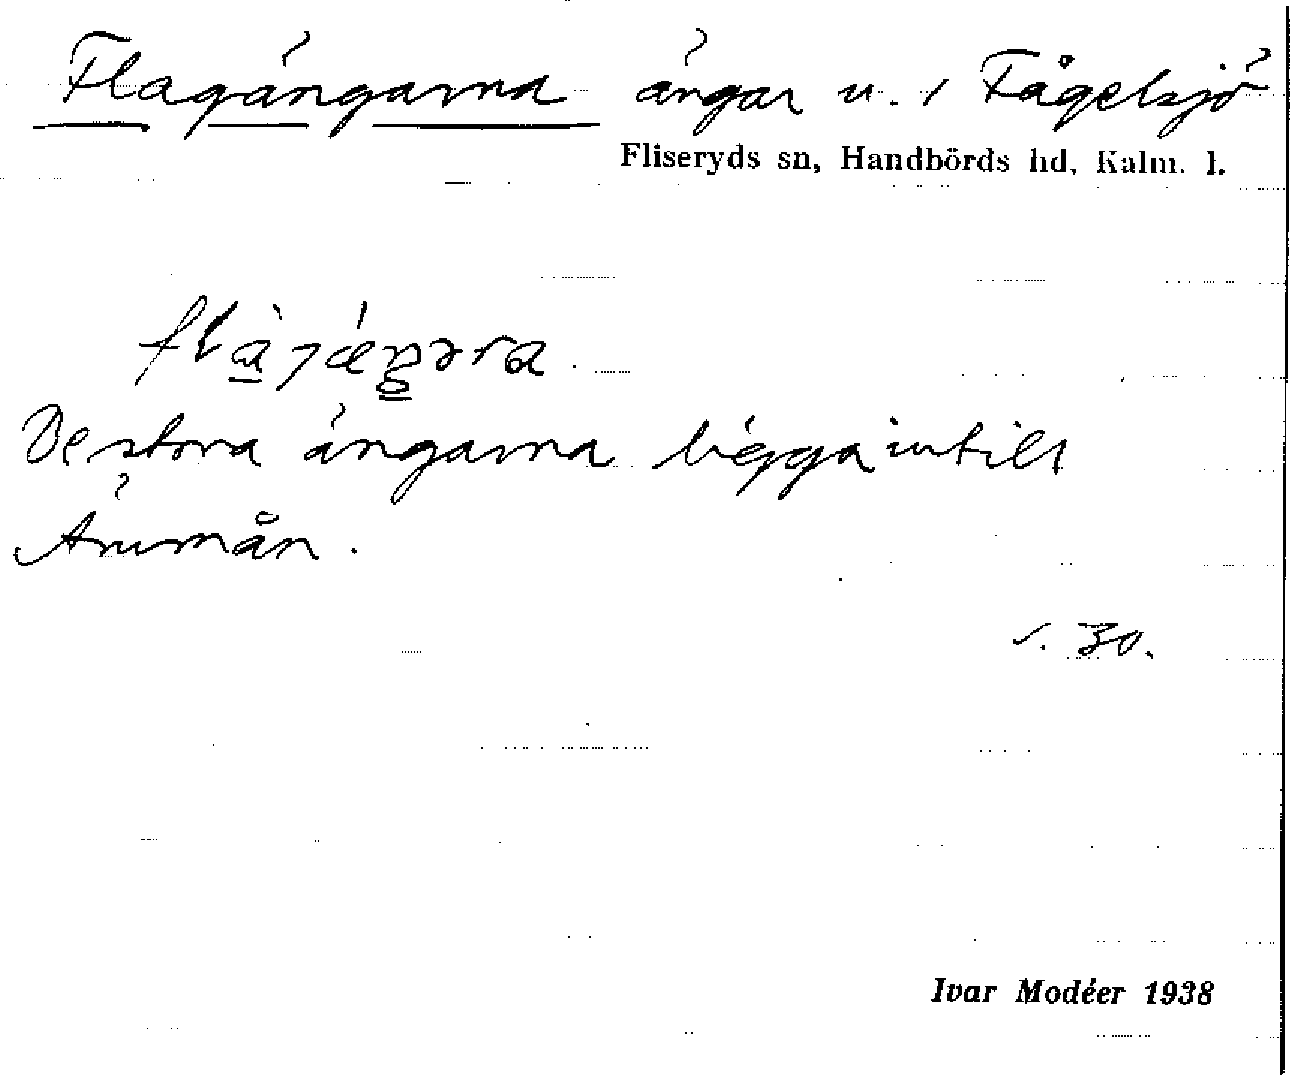 Flagängarna ängar u. 1 Fågelsjö
Fliseryds sn, Handbörds hd, Kalm. l.
De stora ängarna ligga intill
Ärnmån.
s. 30.
Ivar Modéer 1938